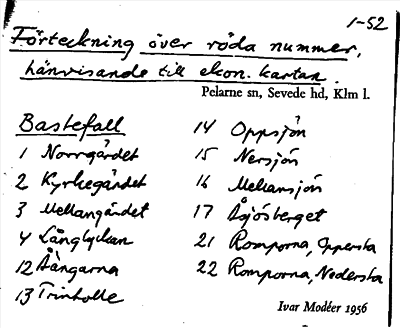 1-52
Förteckning över röda nummer,
hänvisande till ekon. kartan.
Pelarne sn, Sevede hd, Klm l.
Bastefall
1 Norrgärdet
2 Kyrkegärdet
3 Mellangärdet
4 Långlyckan
12 Åängarna
13 Trinkulle
14 Oppsjön
15 Nersjön
16 Mellansjön
17 Åsjösberget
21 Romporna, Oppersta
22 Romporna, Nedersta
Ivar Modéer 1956